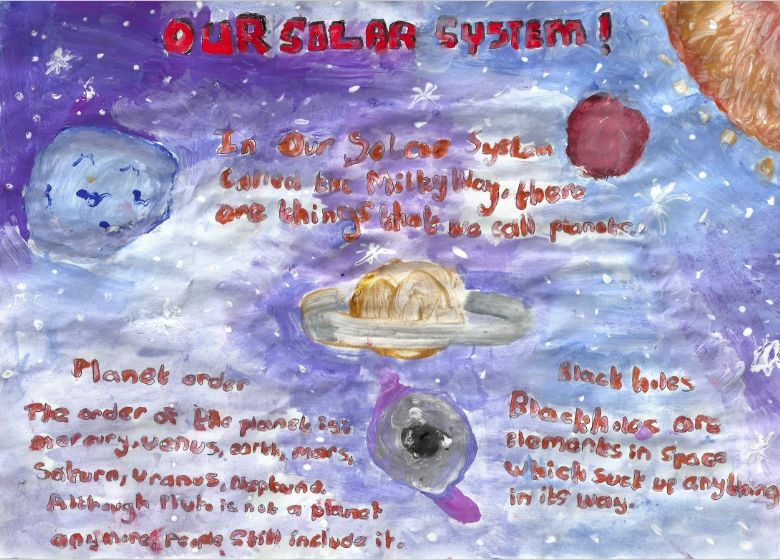 OUR SOLAR SYSTEM!
In Our Solar System
Called the Milky Way, there
are things that we call planets.
Planet order
The order of the planet is:
mercury, venus, earth, mars,
Saturn, uranus, Neptune.
Although Pluto is not a planet
anymore, people still include it.
Black holes
Blackholes are
elements in space
which suck up anything
in its way.